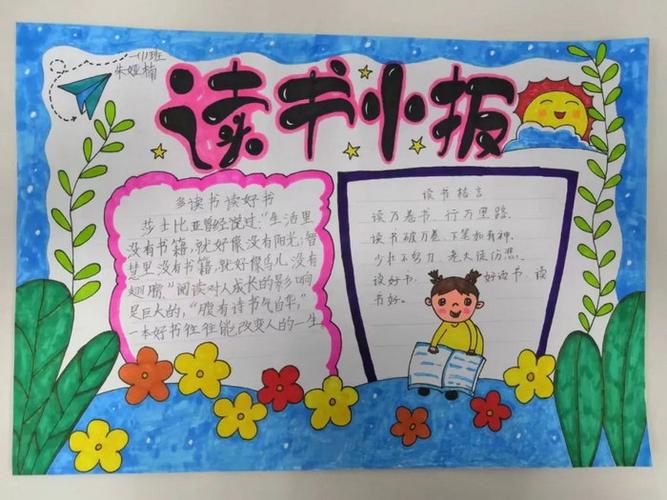 一(1)班
朱娅楠
读书小报
多读书 读好书
莎士比亚曾经说过:“生活里
没有书籍,就好像没有阳光;智
慧里没有书籍,就好像鸟儿没有
翅膀。”阅读对人成长的影响
是巨大的,“腹有诗书气自华,”
一本好书往往能改变人的一生
读书格言
读万卷书,行万里路.
读书破万卷,下笔如有神.
少壮不努力,老大徒伤悲.
读好书, 好读书,读
书好。